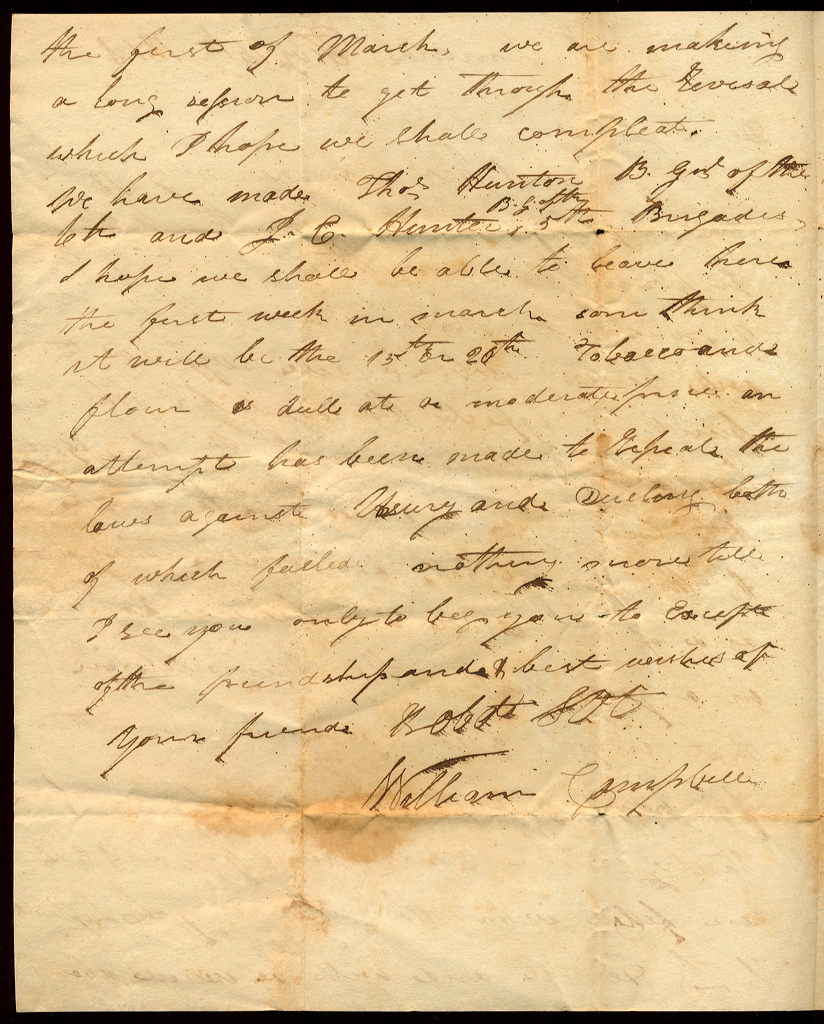 the first of March, we are making
a long session to get through the Revisal
which I hope we shall compleat.
We have made Thos Hunton B. Gnl of the
6th and J. C. Hunter, B. G. of the 5th Brigades,
I hope we shall be able to leave here
the first week in march som think
it will be the 15th or 20th Tobacco and
flour is dull at a moderate price an
attempt has been made to Repeal the
laws against Usury and Dueling both
of which failed nothing more till
I see you only to beg you to Except
of the friendship and & best wishes of
Your friend Robt
William Campbell